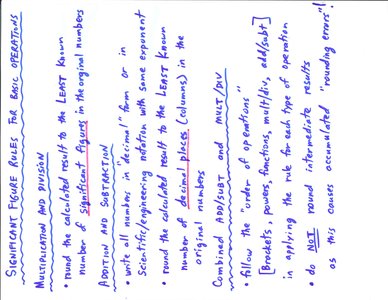 SIGNIFICANT FIGURE RULES FOR BASIC OPERATIONS
MULTIPLICATION AND DIVISION
• round the calculated result to the LEAST known
number of significant figures in the orginal numbers
ADDITION AND SUBTRACTION
• write all numbers in "decimal" form or in
Scientific/engineering notation with same exponent
• round the calculated result to the LEAST known
number of decimal places (columns) in the
original numbers
COMBINED ADD/SUBT and MULT/DIV
• follow the "order of operations"
[Brackets, powers, functions, mult/div, add/subt]
in applying the rule for each type of operation
• do NOT round intermediate results
as this causes accumulated "rounding errors"!